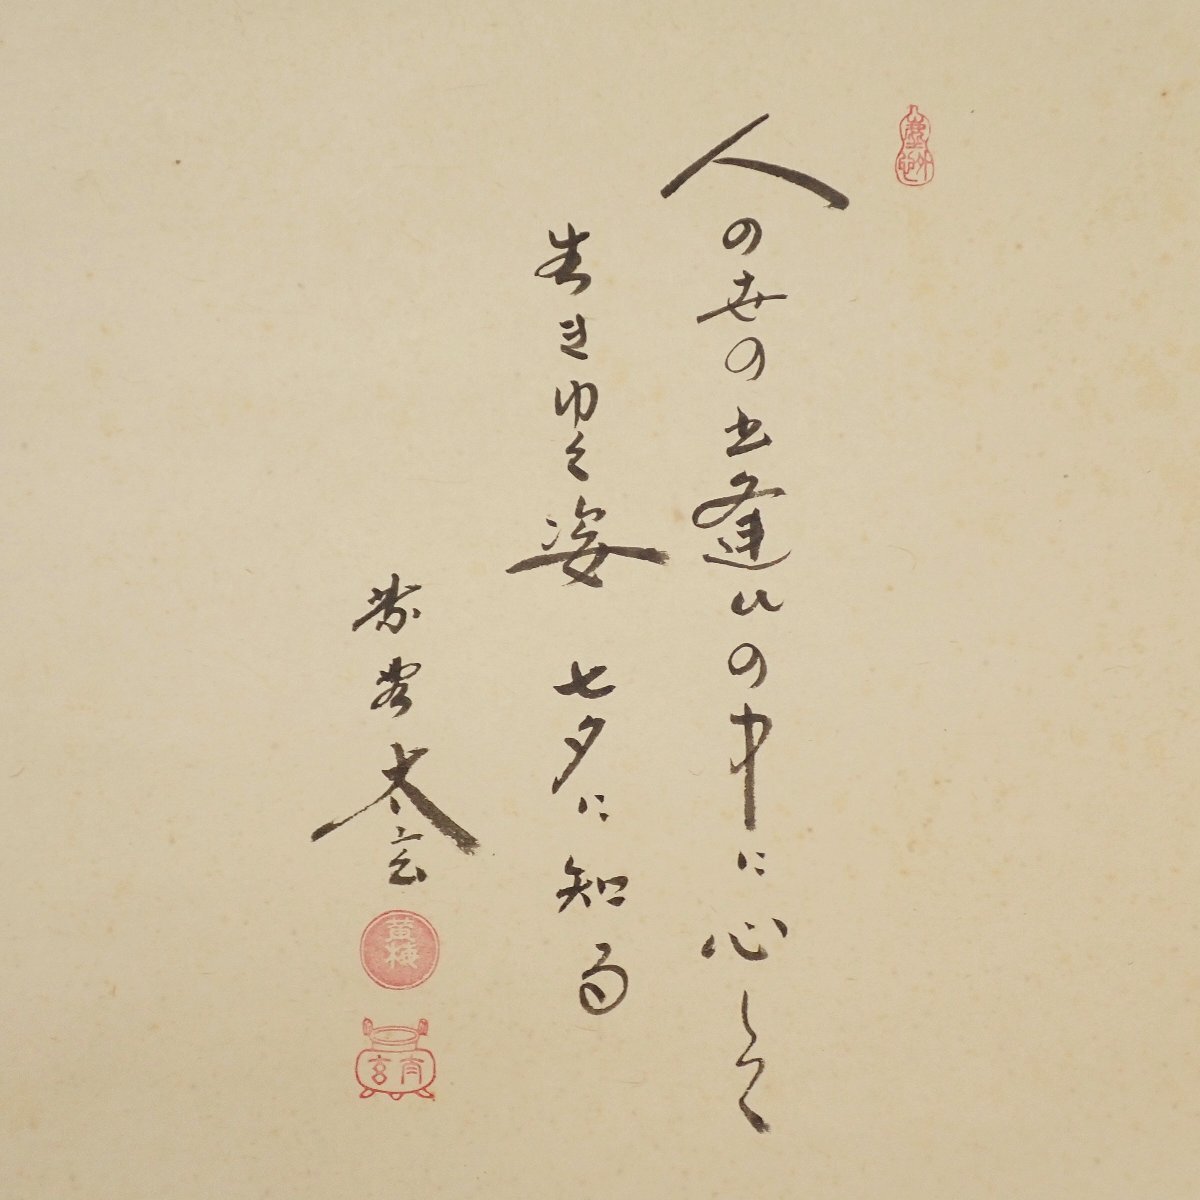 人の世の出逢ひの中に心して
生きゆく姿 七夕に知る
太玄
黄梅